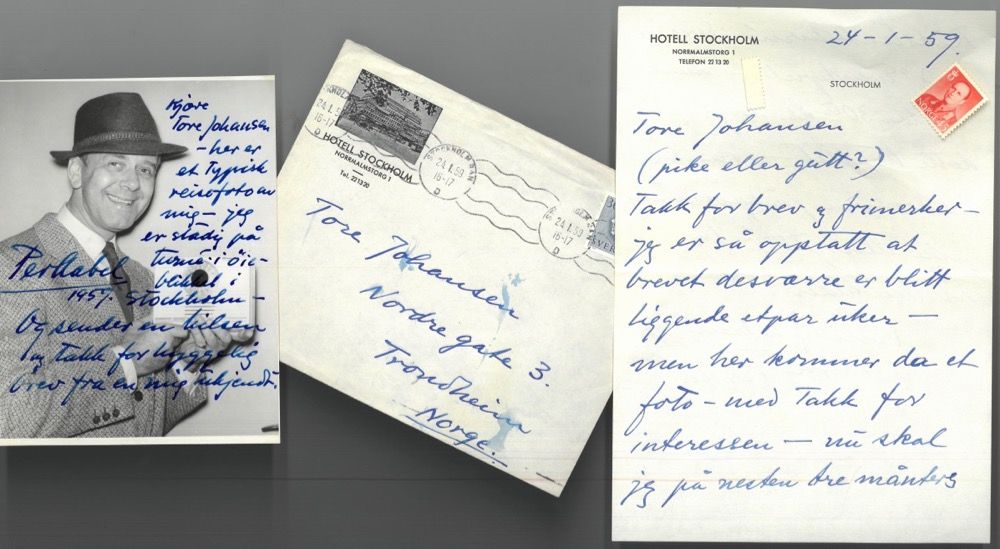 Kjære
Tore Johansen
– her er
et Typisk
reisefoto av
mig – jeg
er stadig på
turné i öie-
blikket i
Per Aabel
1959. Stockholm –
Og sender en hilsen
og takk for hyggelig
brev fra en mig ukjendt.
24.1.59
16-17
HOTELL STOCKHOLM
NORRMALMSTORG 1
Tel. 221320
STOCKHOLM BAN
24.1.59
16-17
24.1.59
16-17
Tore Johansen
Nordre gate 3.
Trondheim
Norge.
HOTELL STOCKHOLM
NORRMALMSTORG 1
TELEFON 22 13 20
24-1-59.
STOCKHOLM
NORGE
Tore Johansen
(pike eller gutt?)
Takk for brev og frimerker –
jeg er så opptatt at
brevet desværre er blitt
liggende et par uker –
men her kommer da et
foto – med Takk for
interessen – nu skal
jeg på nesten tre månters